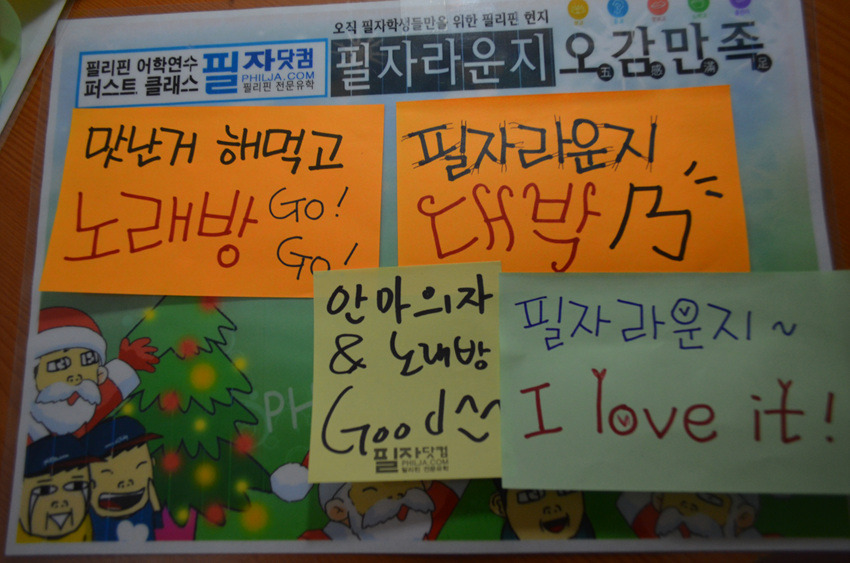 오직 필자학생들만을 위한 필리핀 현지
필리핀 어학연수
퍼스트 클래스
필자닷컴
PHILJA.COM
필리핀 전문유학
필자라운지
오감만족
五感滿足
맛난거 해먹고
노래방 Go!
Go!
필자라운지
대박
안마의자
& 노래방
Good ^^
필자닷컴
PHILJA.COM
필리핀 전문유학
필자라운지~
I love it!
PH